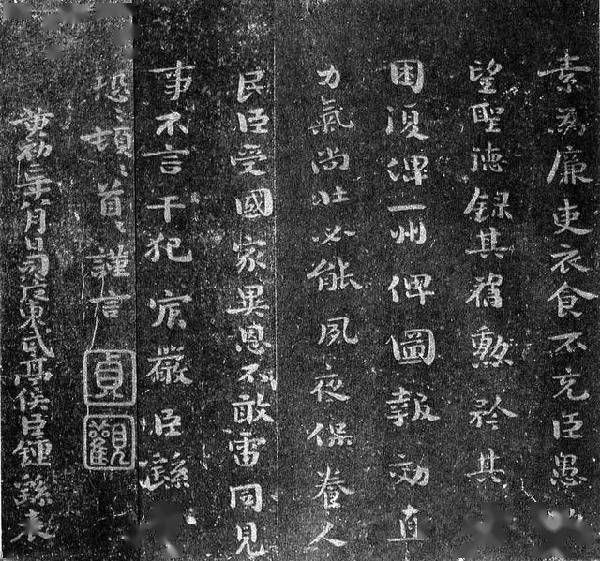 素爲廉吏衣食不充臣愚
望聖德錄其舊勳矜其
困復俾一州俾圖報効直
力氣尚壯必能夙夜保養人
民臣受國家異恩不敢雷同見
事不言干犯宸嚴臣繇
恐〻頓〻首〻謹言
貞觀
黃初二年八月日司徒東武亭侯臣鍾繇表